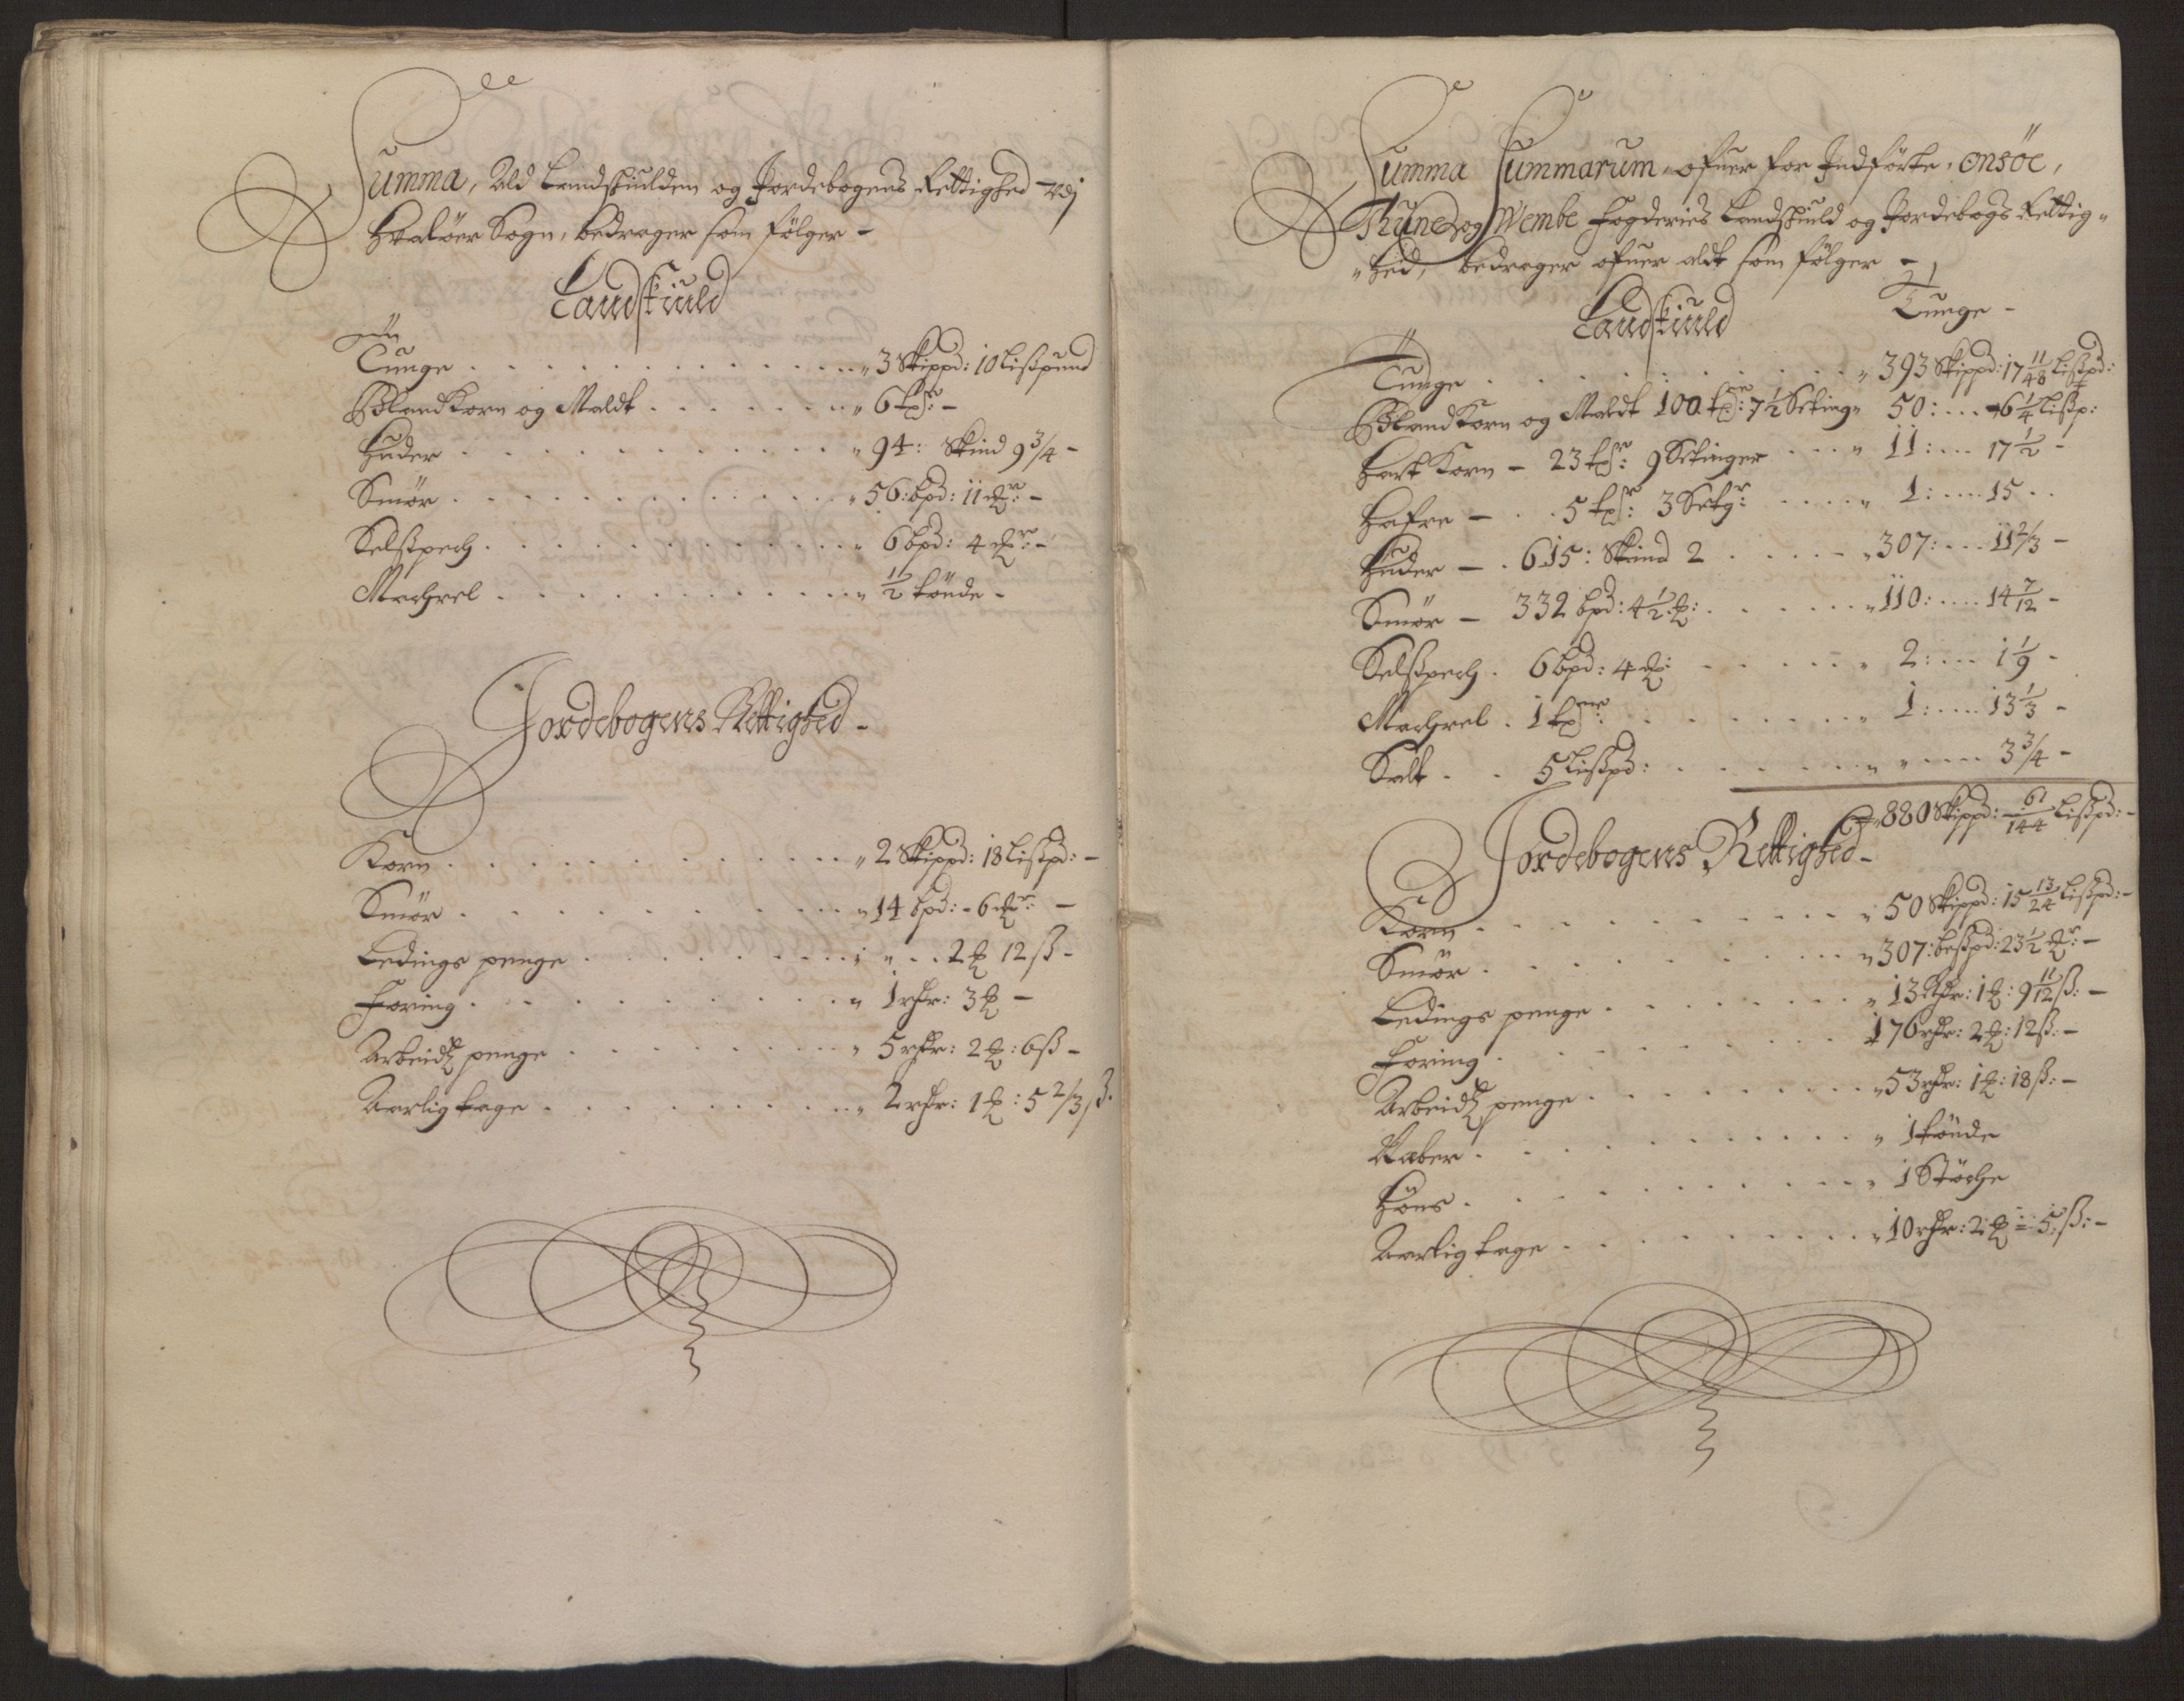 Summa, Ald Landskiulden og Jordebogens Rettighed udj
Hvaløer Sogn, bedrager som følger -
Landskiuld
Tunge . . . . . . . . . . . „ 3 Skippd: 10 Lißpund
Blandkorn og Maldt . . . . . . „ 6 tr: -
Huder . . . . . . . . . . . „ 94: Skind 9 3/4 -
Smør . . . . . . . . . . . „ 56: bpd: 11 mr: -
Selßpech . . . . . . . . . . . „ 6 bpd: 4 mr: -
Machrel . . . . . . . . . . . „ 1/2 tønde -
Jordebogens Rettighed -
Korn . . . . . . . . . . . „ 2 Skippd: 18 Lißpd: -
Smør . . . . . . . . . . . „ 14 bpd: - 6 mr: -
Ledings penge . . . . . . . . . „ . . 2 mk 12 ß -
Foring . . . . . . . . . . „ 1 rdr: 3 mk -
Arbeidtz penge . . . . . . . . „ 5 rdr: 2 mk: 6 ß -
Aarlig tage . . . . . . . . . „ 2 rdr: 1 mk: 5 2/3 ß.
Summa Summarum, ofuer for Indførte, Onsøe,
Thune og Wembe Fogderies Landskiuld og Jordebogs Rettig„
„hed, bedrager ofuer aldt som følger -
Landskiuld Tunge -
Tunge . . . . . . . . . . „ 393 Skippd: 17 11/48 Lißpd:
Blandkorn og Maldt 100 tr: 7 1/2 Seting „ 50: . . . 6 1/4 Lißp:
Hart Korn - 23 tr: 9 Setinger . . . „ 11: . . . 17 1/2 -
Hafre - . . 5 tr: 3 Setgr: . . . . „ 1: . . . . 15 . .
Huder - . 615: Skind 2 . . . . . „ 307: . . . 11 2/3 -
Smør - 332 bpd: 4 1/2 mk: . . . . . . „ 110: . . . . 14 7/12 -
Selßpech . 6 bpd: 4 mk: . . . . . . „ 2: . . . 1 1/9 -
Machrel . 1 tønne: . . . . . . . . „ 1: . . . . 13 1/3 -
Salt . . 5 Lißpd: . . . . . . . „ „ . . . . 3 3/4 -
880 Skippd: - 61/144 Lißpd: -
Jordebogens Rettighed -
Korn . . . . . . . . . . . „ 50 Skippd: 15 13/24 Lißpd: -
Smør . . . . . . . . . . „ 307: beßpd: 23 1/2 mr: -
Ledings penge . . . . . . . „ 13 Rdr: 1 mk: 9 11/12 ß: -
Foring . . . . . . . . . . 176 rdr: 2 mk: 12 ß: -
Arbeidtz penge . . . . . . . . . „ 53 rdr: 1 mk: 18 ß: -
Naber . . . . . . . . . . . „ 1 tønde
Høns . . . . . . . . . . . „ 1 Støche
Aarlig tage . . . . . . . . . „ 10 rdr: 2 mk = 5: ß: -